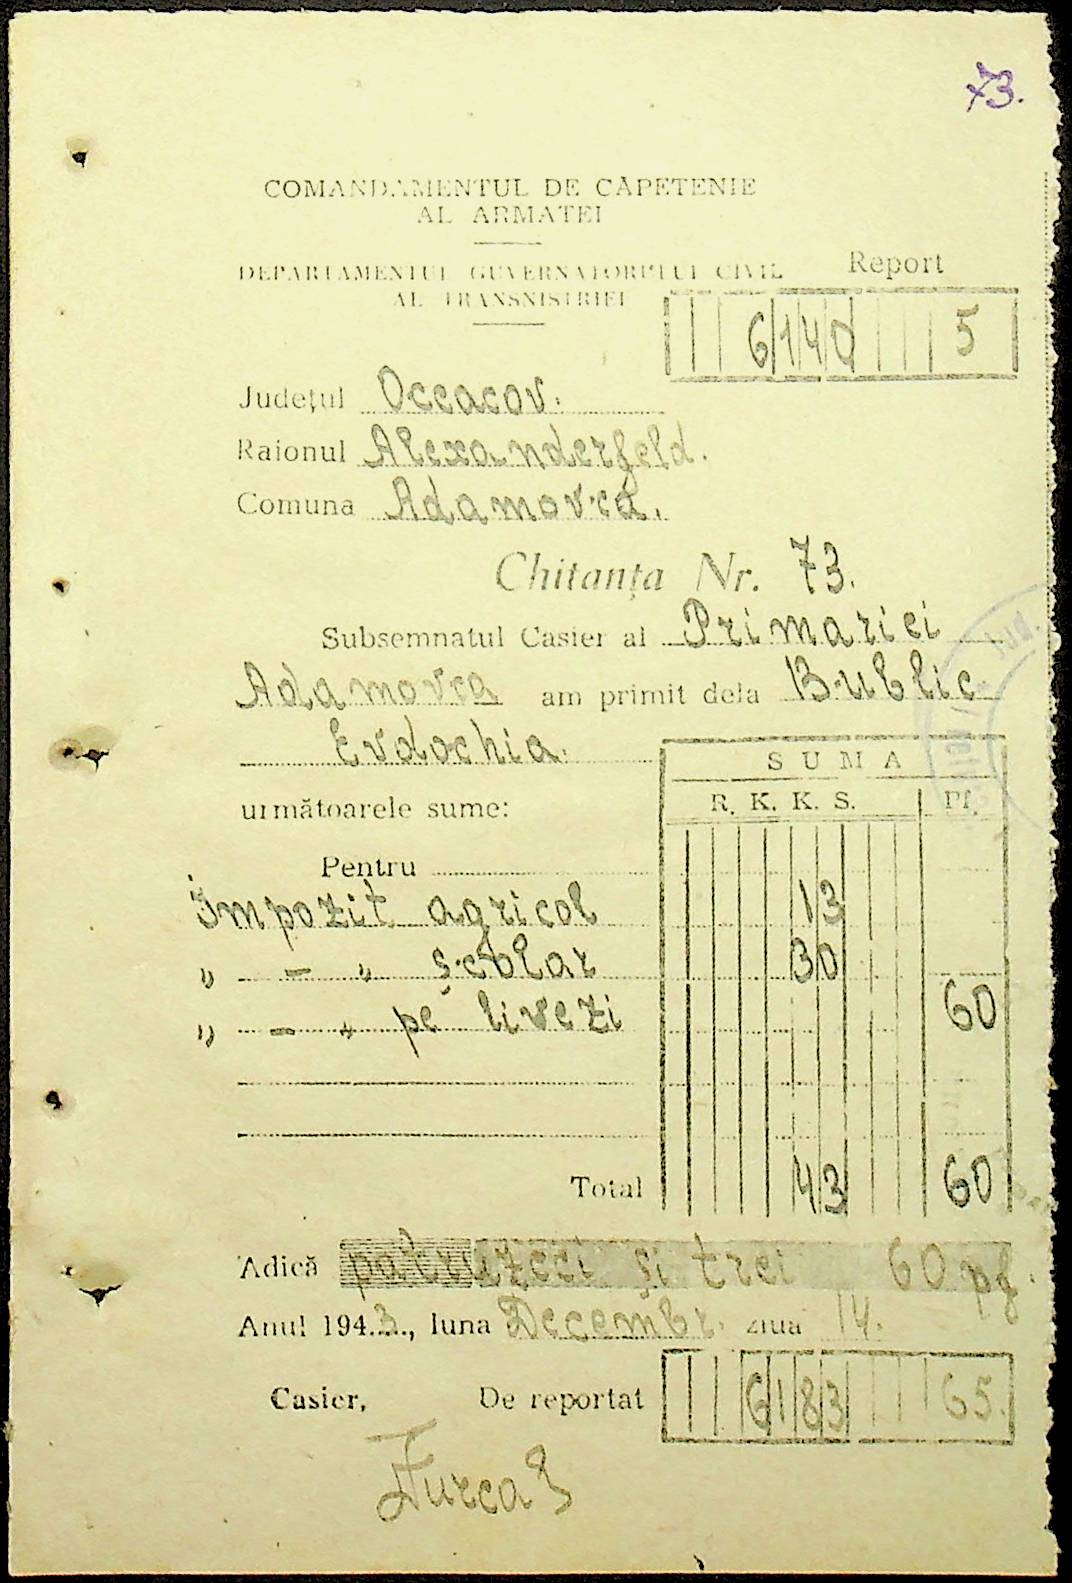 73.
COMANDAMENTUL DE CĂPETENIE
AL ARMATEI
DEPARTAMENTUL GUVERNATORULUI CIVIL
AL TRANSNISTRIEI
Report
6140 5
Județul Oceacov.
Raionul Alexanderfeld.
Comuna Adamovca.
Chitanța Nr. 73.
Subsemnatul Casier al Primariei
Adamovca am primit dela Bublic
Evdochia.
SUMA
R. K. K. S. Pf.
următoarele sume:
Pentru
Impozit agricol 13
„ – „ școlar 30
„ – „ pe livezi 60
Total 43 60
Adică patruzeci și trei 60 pf.
Anul 1943, luna Decembr. ziua 14.
Casier, De reportat 6183 65.